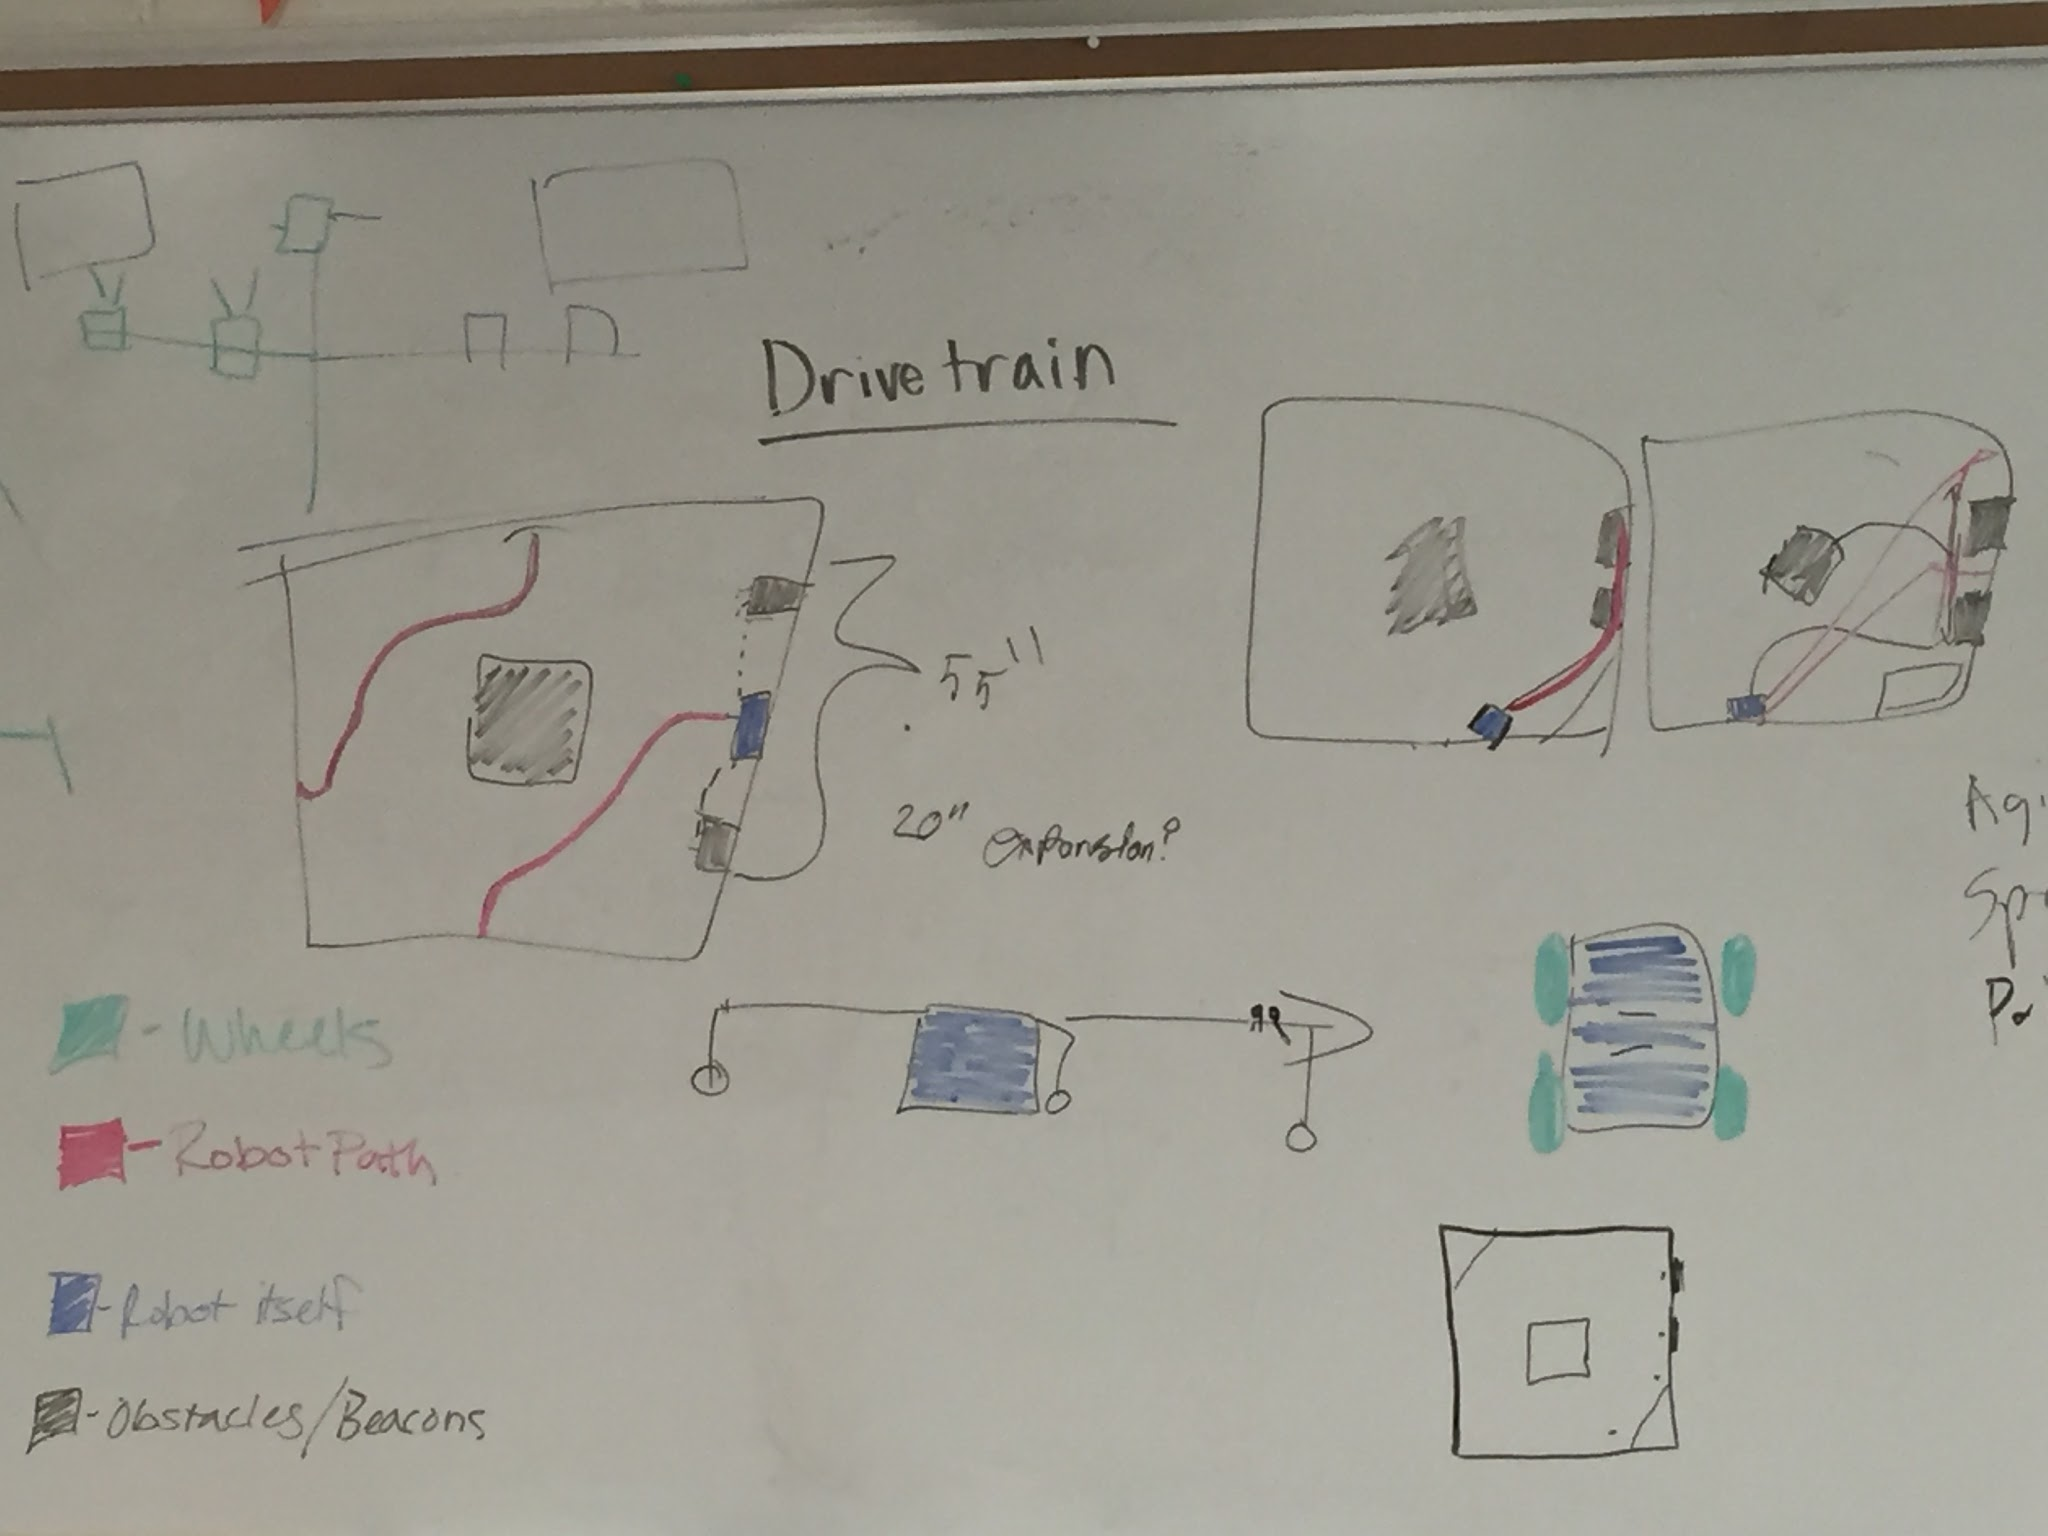 Drivetrain
55"
20" expansion?
- Wheels
- Robot Path
- Robot itself
- Obstacles/Beacons